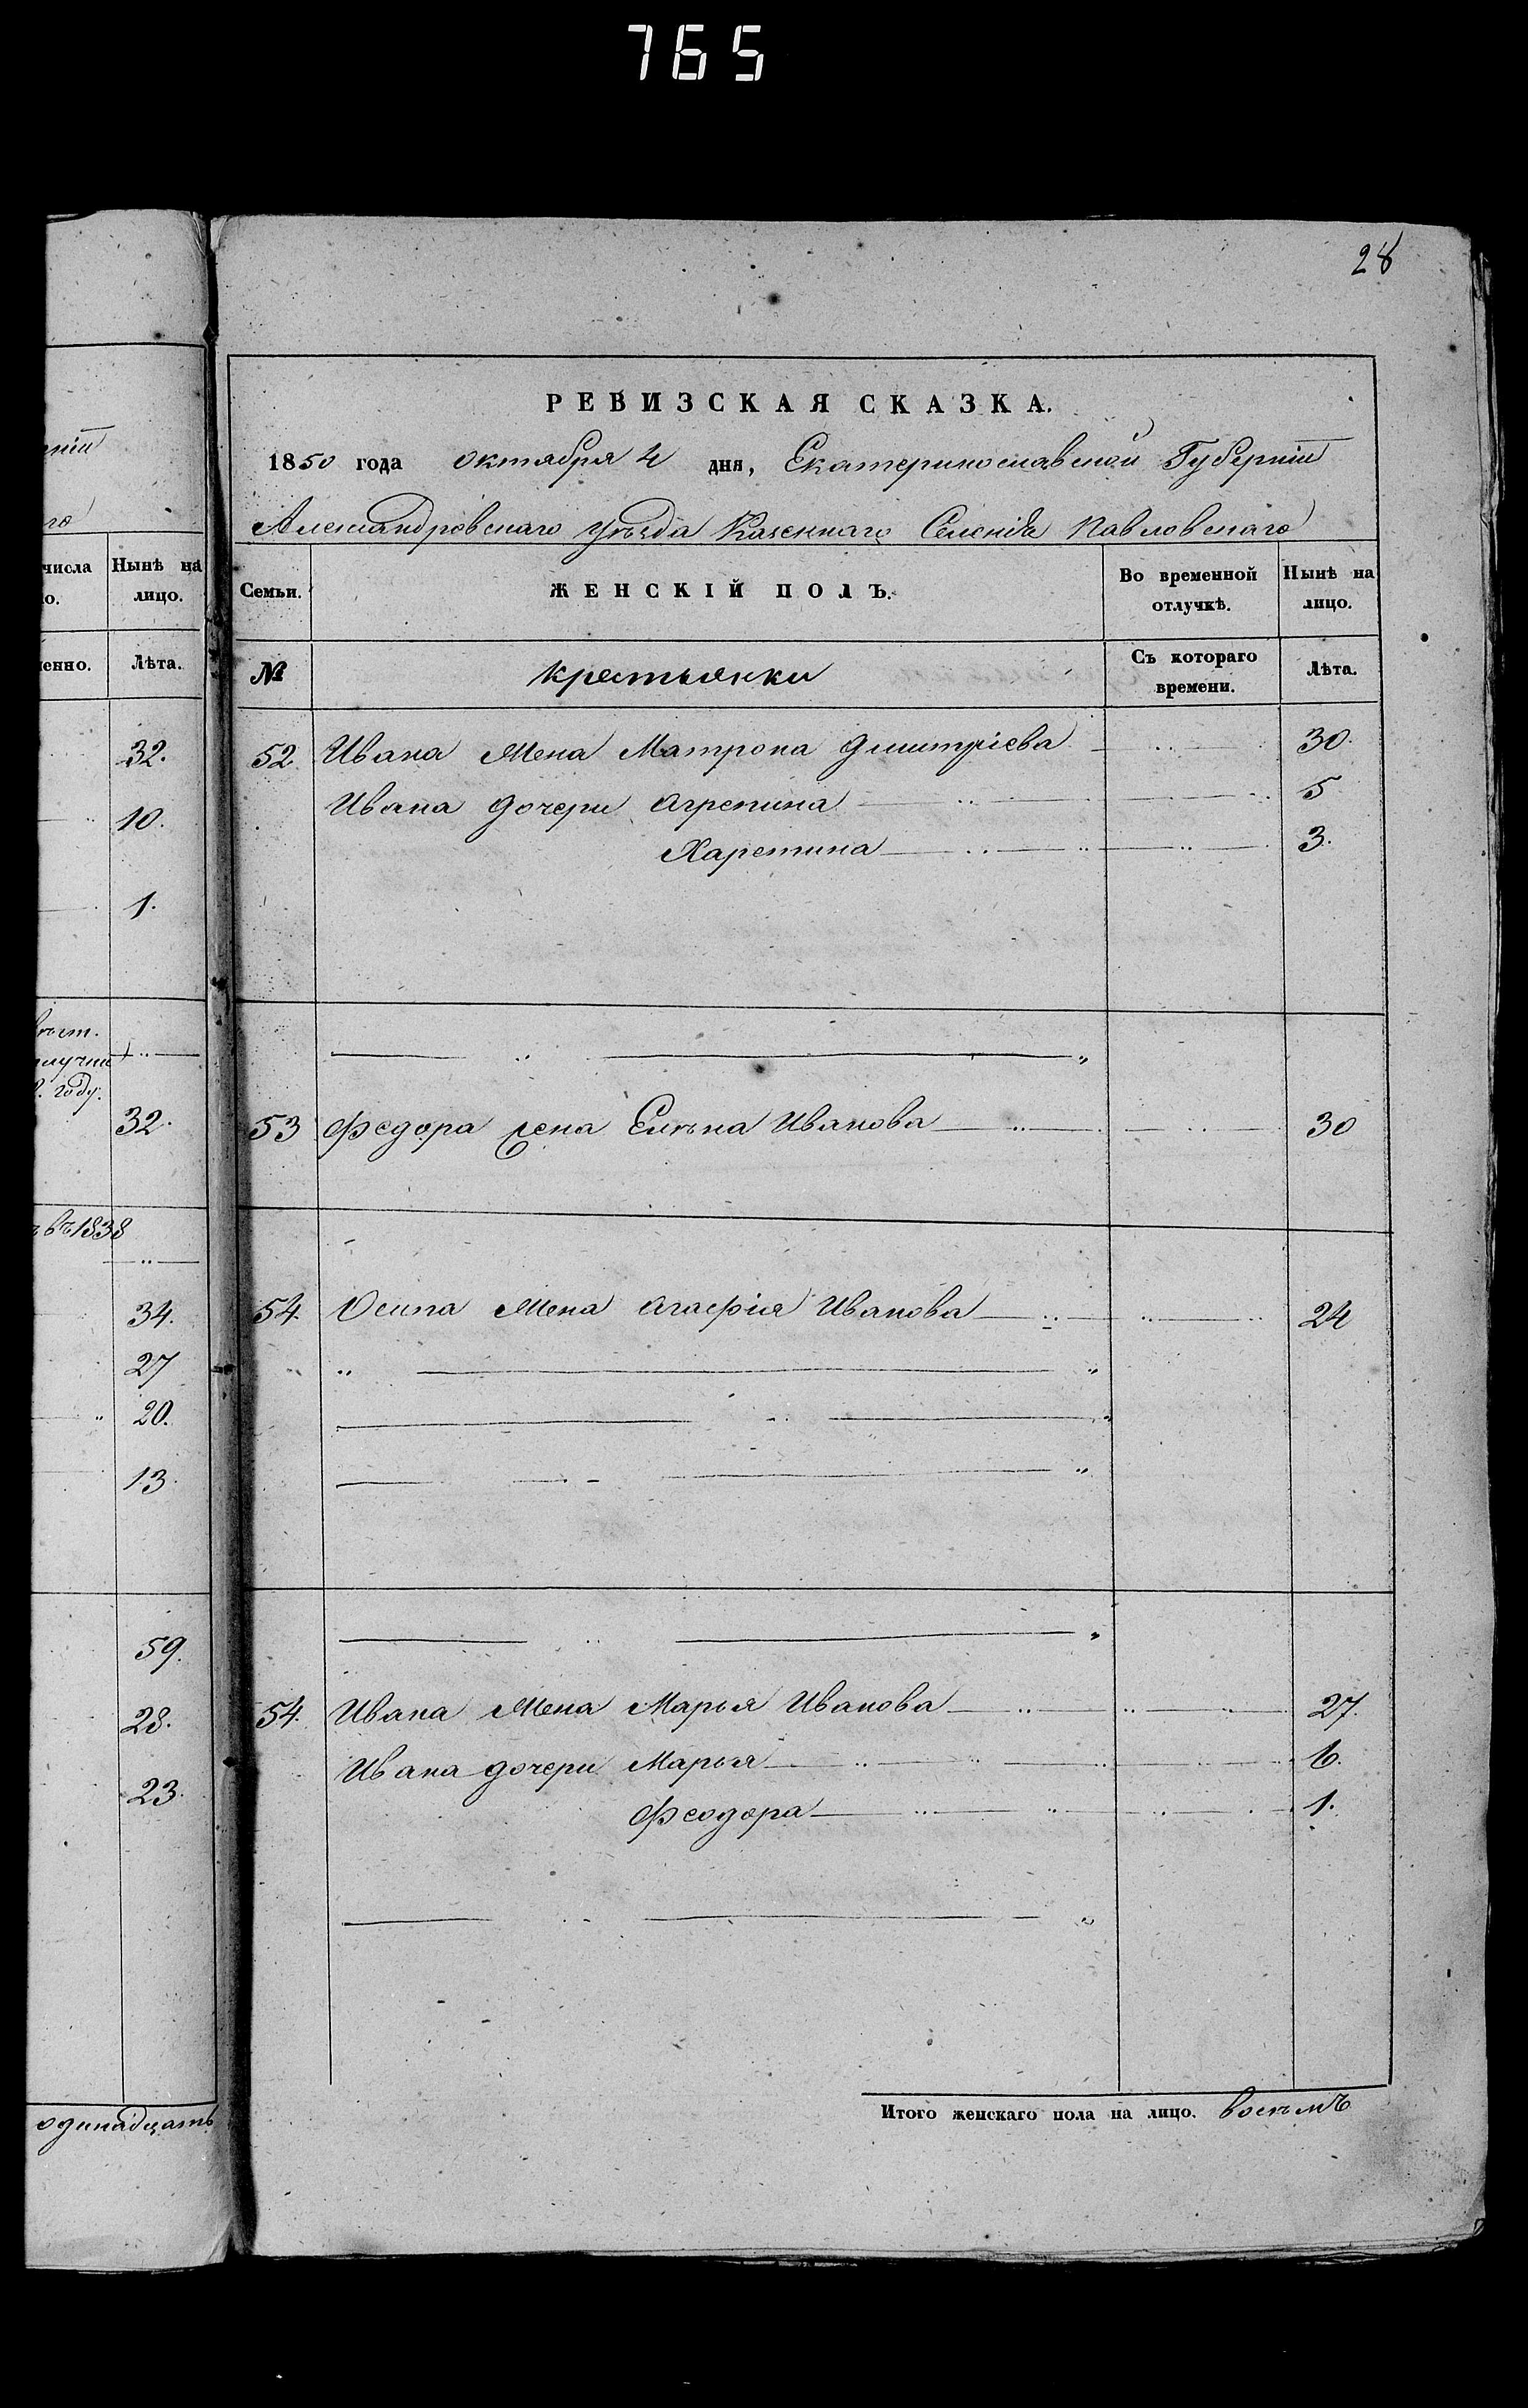 765
28
ній
го
числа Нынѣ на
о. лицо.
менно. Лѣта.
32.
10.
1.
лучки
году.
32.
въ 1838
34.
27
20.
13.
59.
28.
23.
одинадцать
РЕВИЗСКАЯ СКАЗКА.
1850 года октября 4 дня, Екатеринославской Губерніи
Александровскаго уѣзда Казеннаго Селенія Павловскаго
Семьи. ЖЕНСКІЙ ПОЛЪ. Во временной отлучкѣ. Нынѣ на лицо.
№ крестьянки Съ котораго времени. Лѣта.
52. Ивана Жена Матрона Дмитріева 30.
Ивана дочери Агрепина 5
Харетина 3.
53 Федора жена Елѣна Иванова 30
54. Осипа Жена Агафія Иванова 24
54. Ивана Жена Марья Иванова 27.
Ивана дочери Марья 6.
Феодора 1.
Итого женскаго пола на лицо. восѣмъ